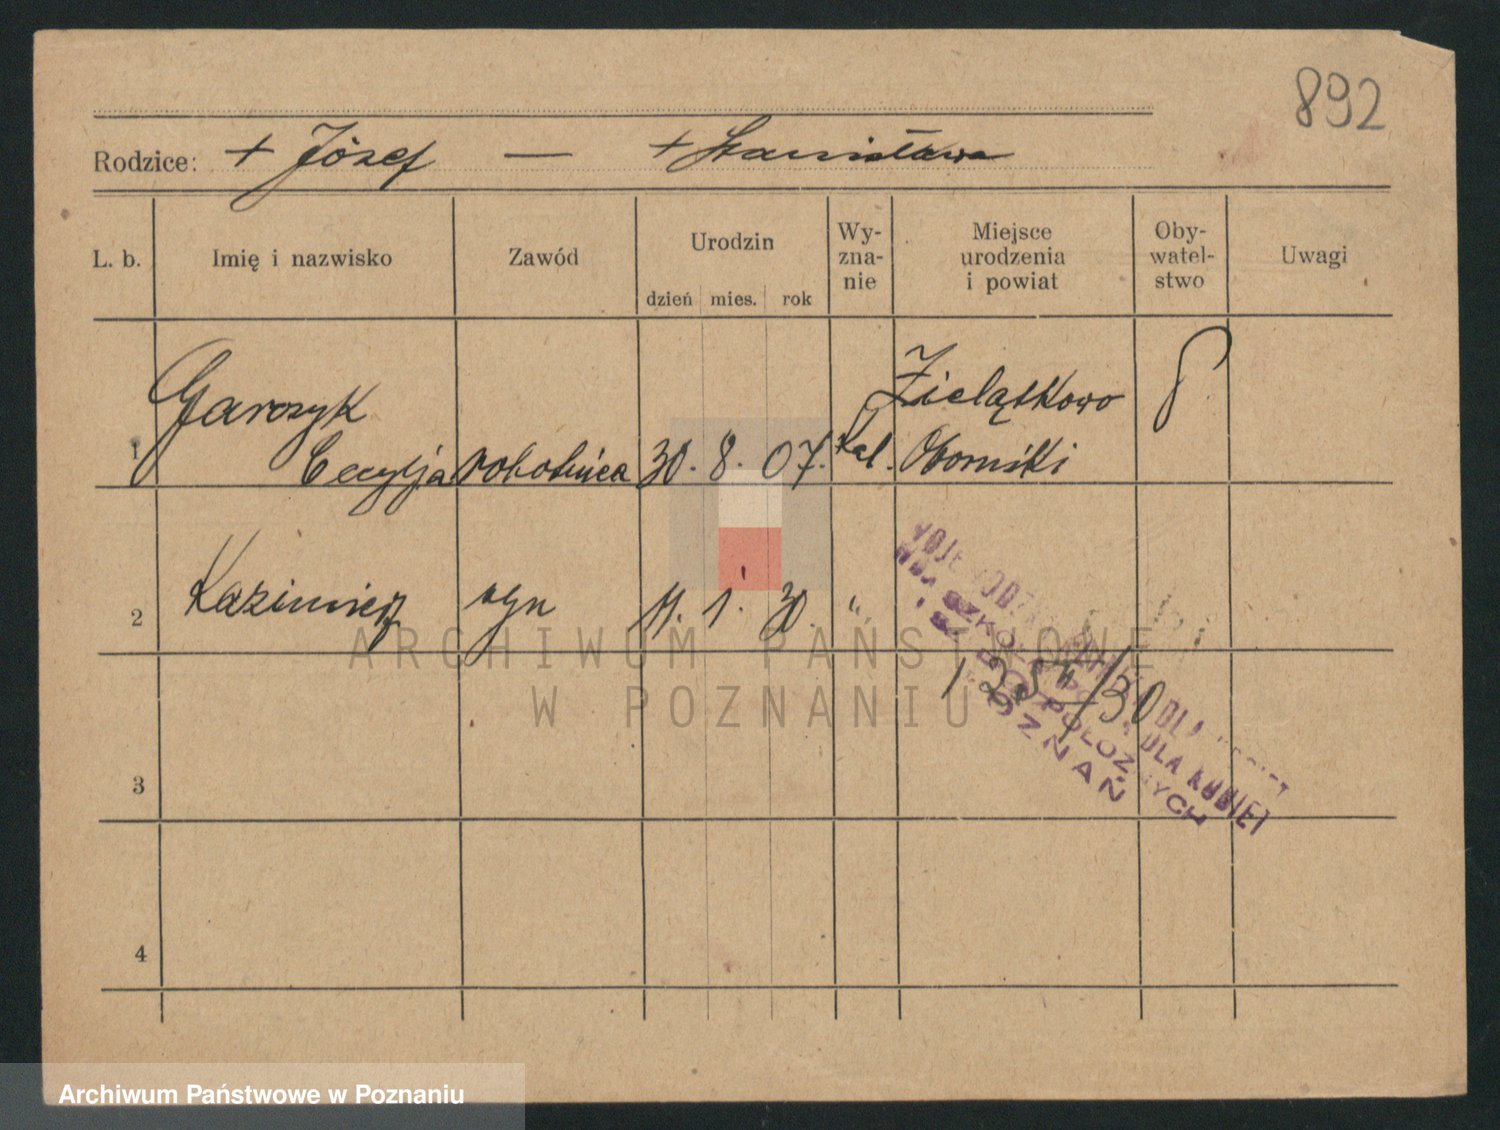 892
Rodzice: + Józef — + Stanisława
L. b. Imię i nazwisko Zawód Urodzin dzień mies. rok Wy-zna-nie Miejsce urodzenia i powiat Oby-watel-stwo Uwagi
Garczyk Zielątkowo P
1 Cecylja robotnica 30. 8. 07. Kat. Oborniki
2 Kazimierz syn 11. 1. 30. "
3
4
SZKOŁA POŁOŻNYCH
DLA KOBIET
POZNAŃ
ARCHIWUM PAŃSTWOWE
W POZNANIU
Archiwum Państwowe w Poznaniu